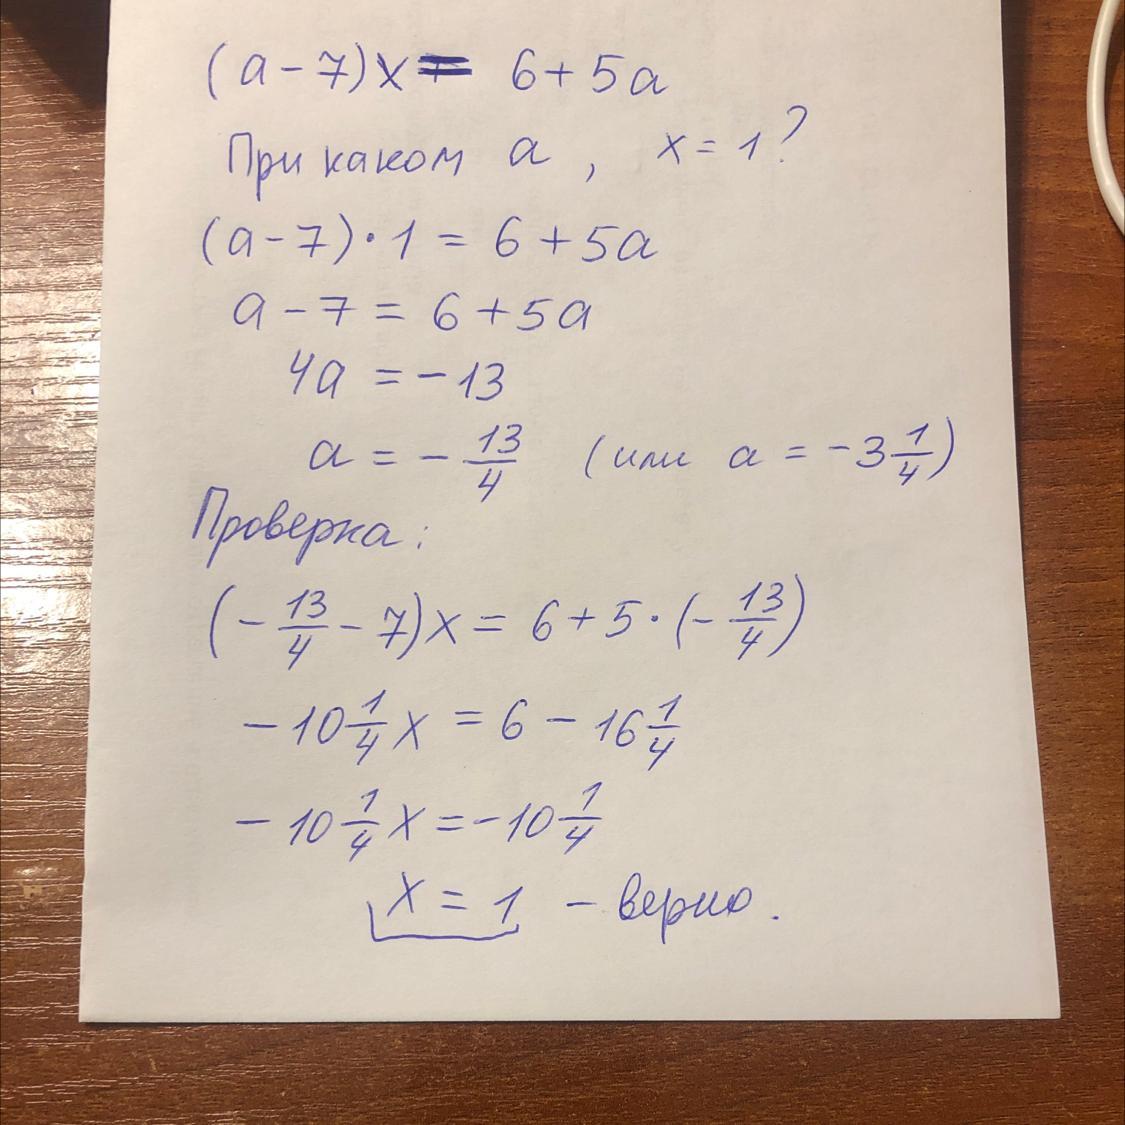 (a - 7)x = 6 + 5a
При каком a, x = 1?
(a - 7) · 1 = 6 + 5a
a - 7 = 6 + 5a
4a = - 13
a = - 13/4 (или a = -3 1/4)
Проверка:
(- 13/4 - 7)x = 6 + 5 · (- 13/4)
- 10 1/4 x = 6 - 16 1/4
- 10 1/4 x = - 10 1/4
x = 1 - верно.